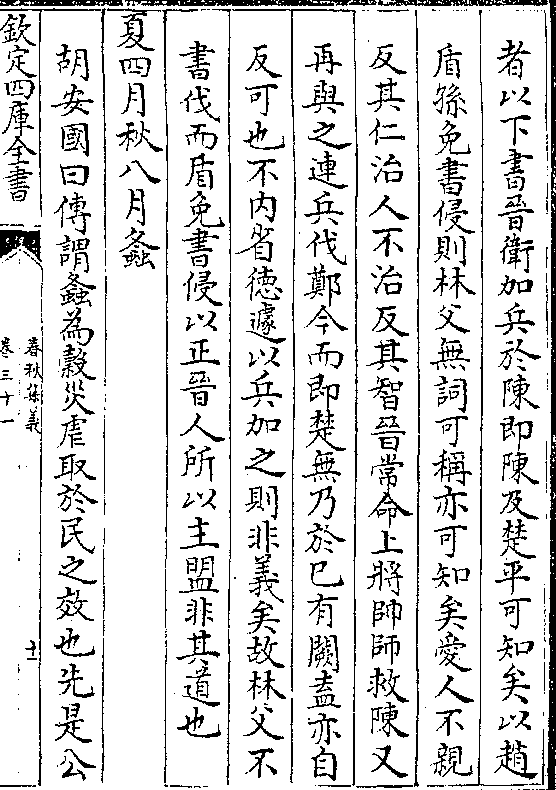 者以下書晉衛加兵於陳即陳及楚平可知矣以趙
盾孫免書侵則林父無詞可稱亦可知矣愛人不親
反其仁治人不治反其智晉常命上將帥師救陳又
再與之連兵伐鄭今而即楚無乃於已有闕盍亦自
反可也不内省徳遽以兵加之則非義矣故林父不
書伐而盾免書侵以正晉人所以主盟非其道也
夏四月秋八月螽
胡安國曰傳謂螽為穀災虐取於民之效也先是公
欽定四庫全書
春秋集義
卷三十一
十二